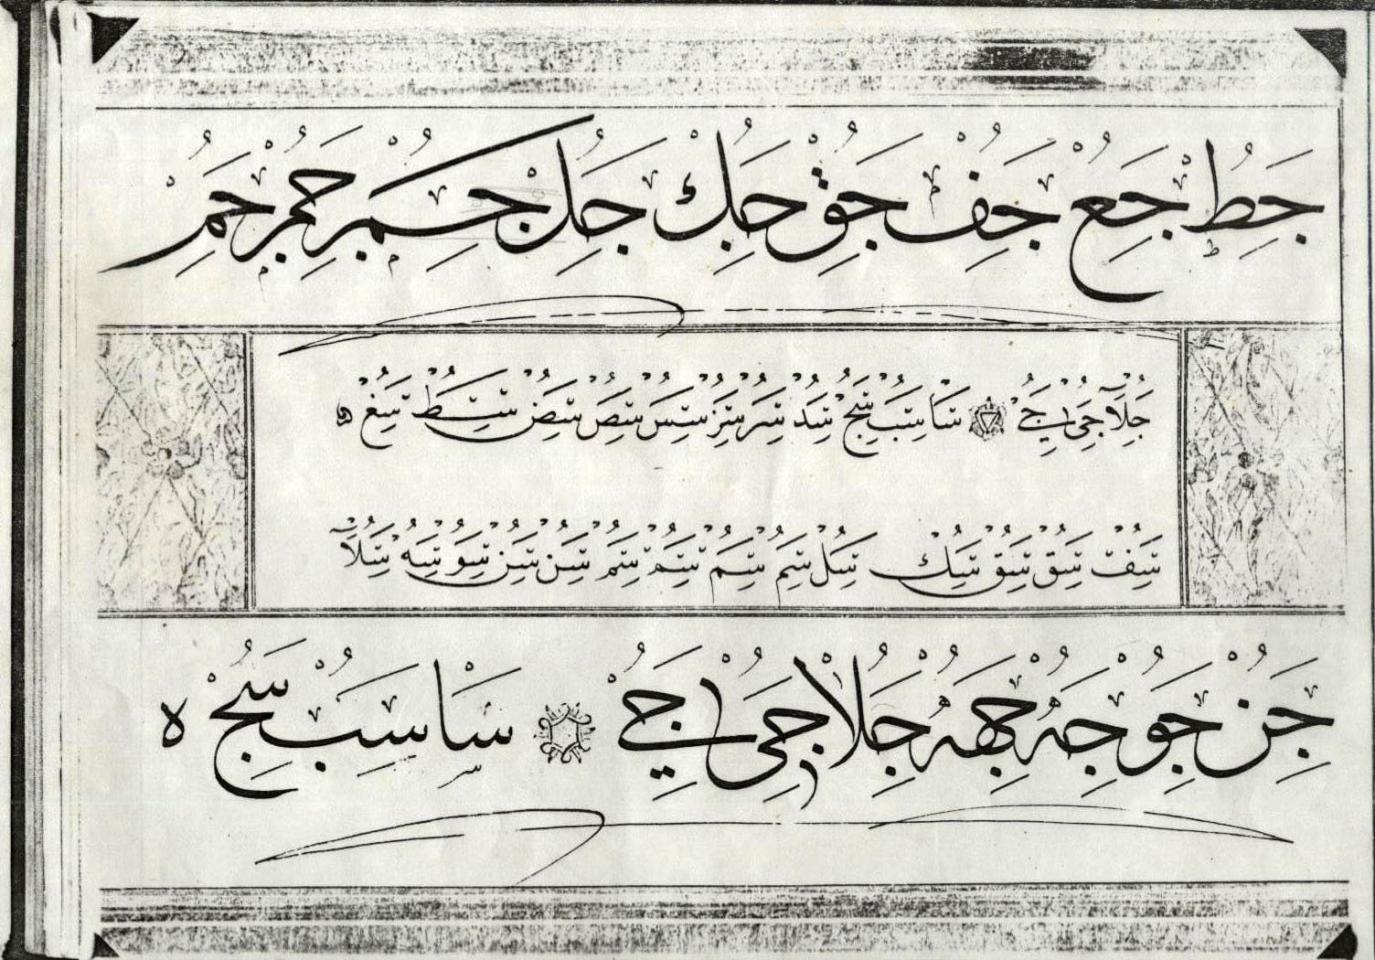 جط جع جف جق جك جل جم جم جم
جلا جى جے سا سب سج سد سر سز سس سص سض سط سغ ه
سف سق سق سك سل سم سم سم سم سن سن سو سه سلا
جن جو جه جهه جلا جى جے سا سب سج ه